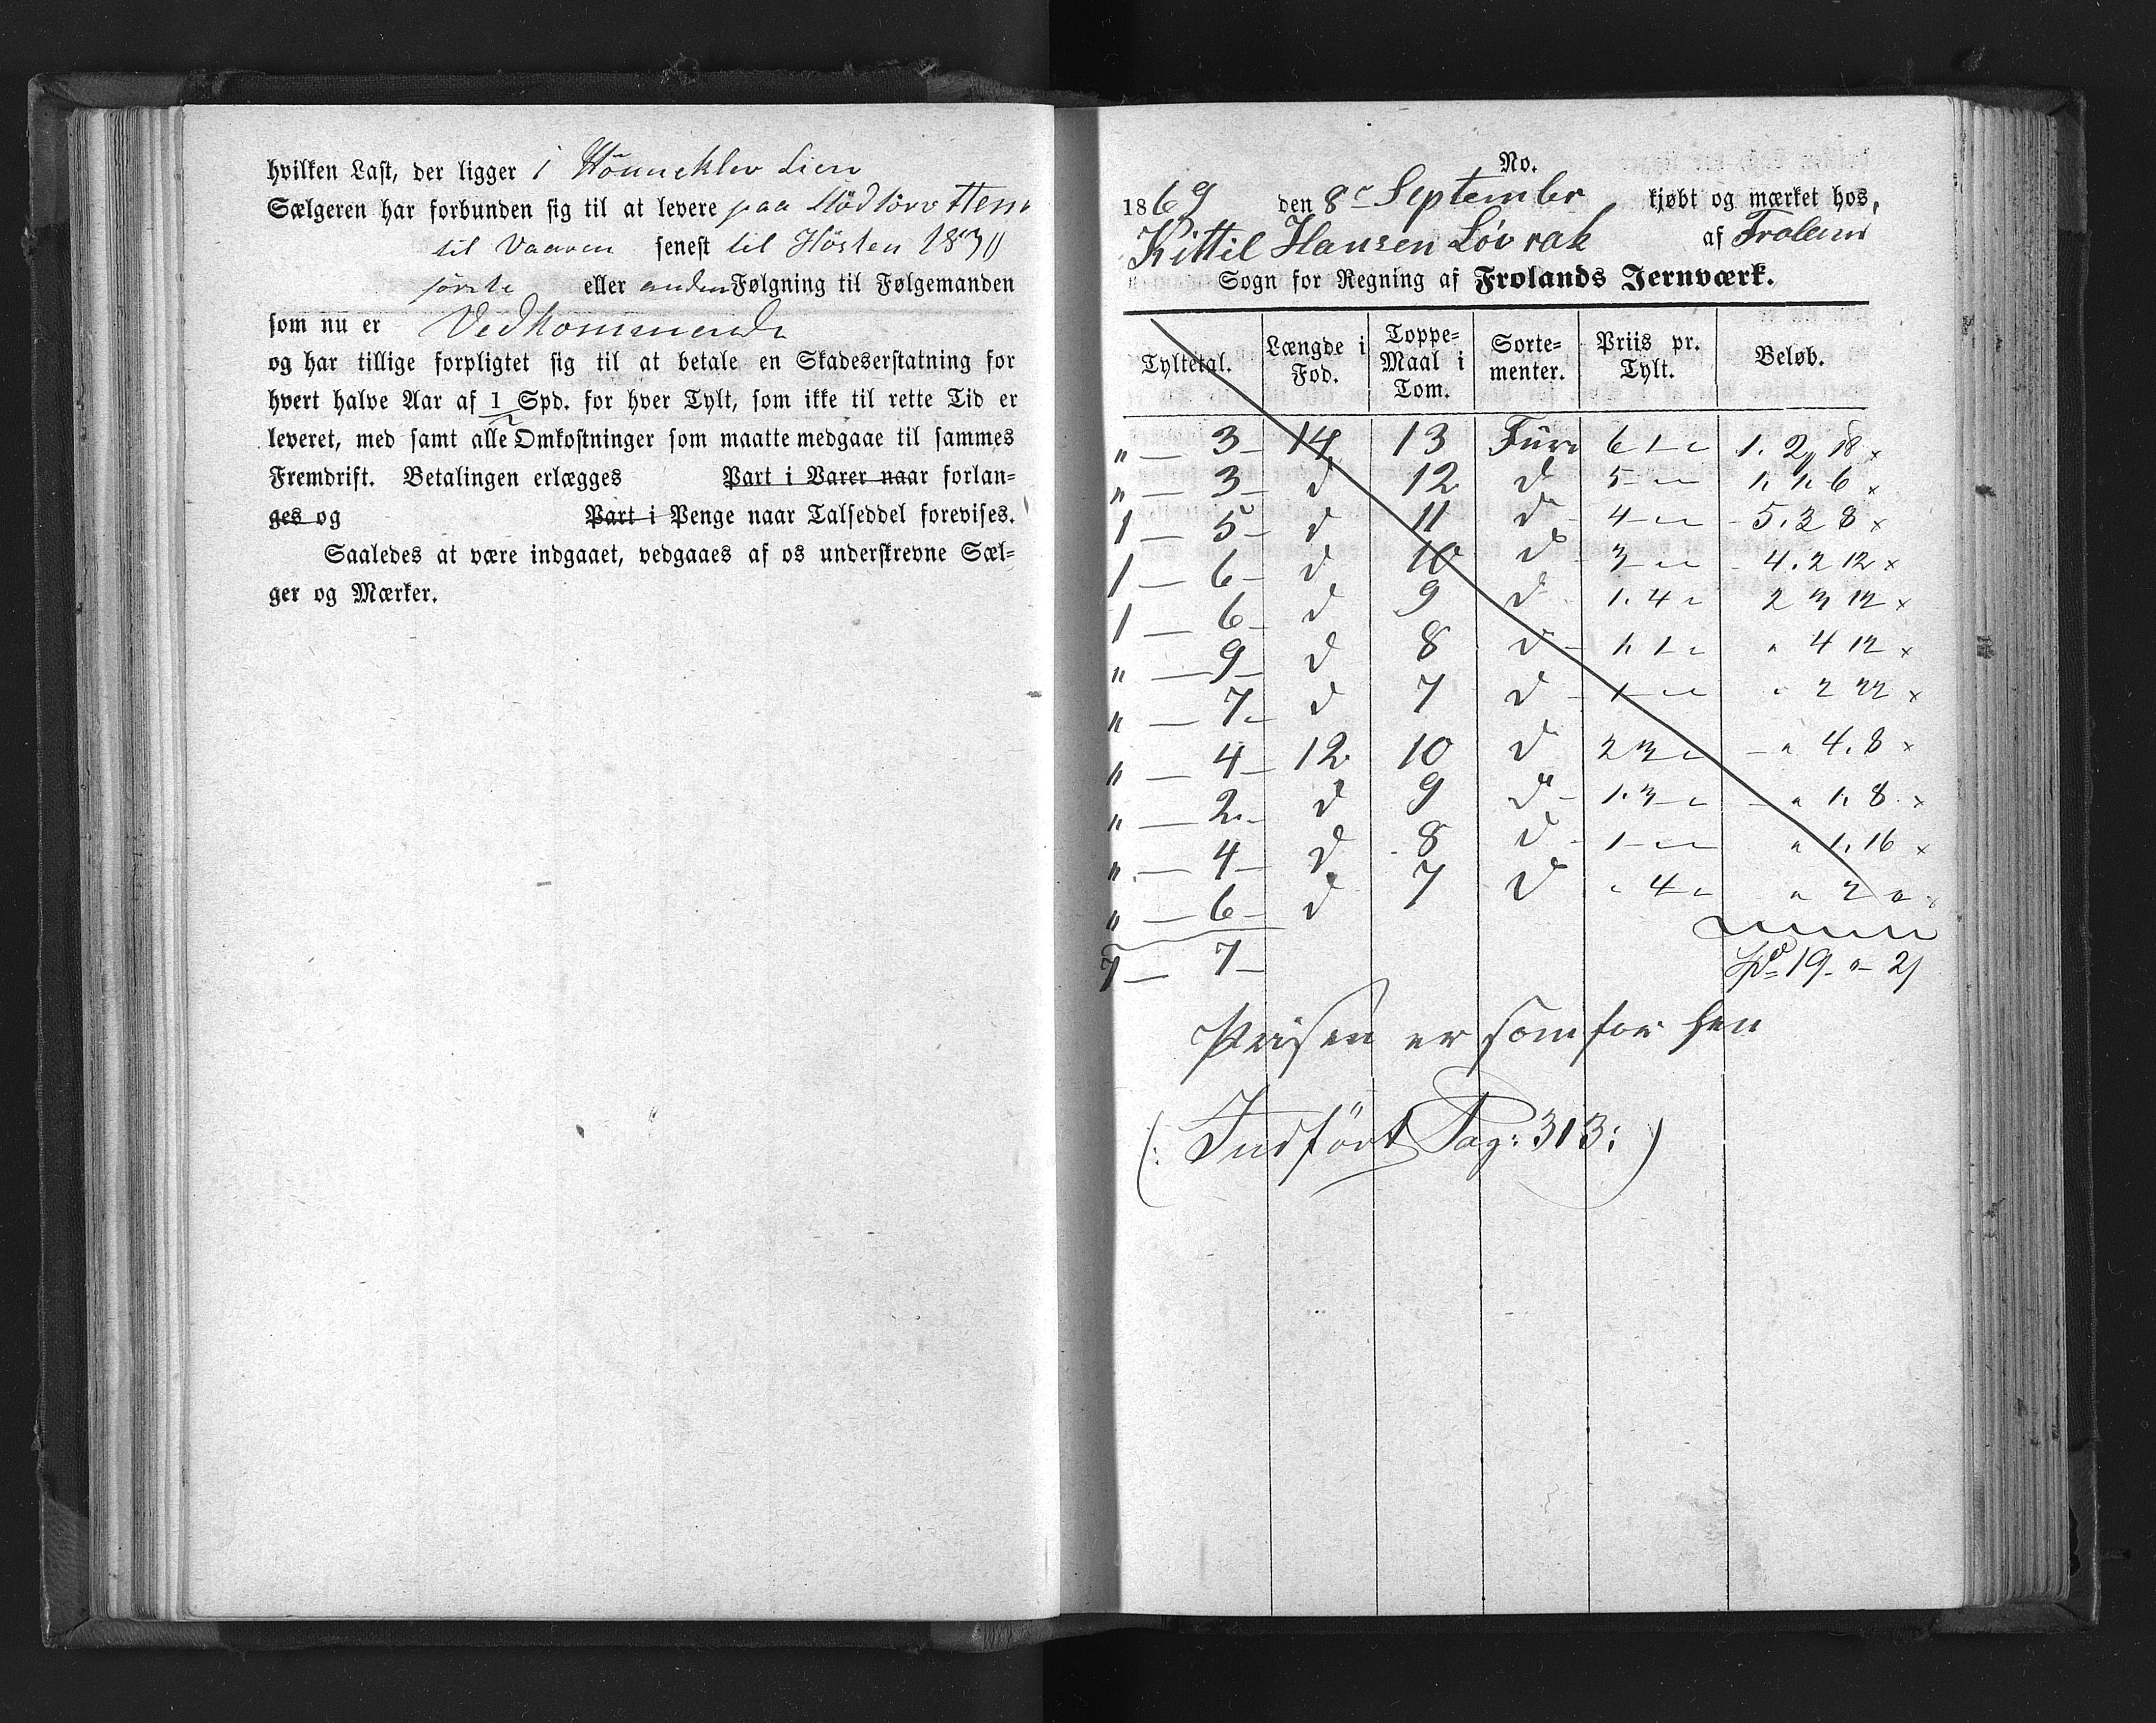 hvilken Last, der ligger i Hönneklev Lien
Sælgeren har forbunden sig til at levere paa
til Vaaren senest til Hösten 1870
förste eller anden Følgning til Følgemanden
som nu er Vedkommende
og har tillige forpligtet sig til at betale en Skadeserstatning for
hvert halve Aar af 1 Spd. for hver Tylt, som ikke til rette Tid er
leveret, med samt alle Omkostninger som maatte medgaae til sammes
Fremdrift. Betalingen erlægges Part i Varer naar forlan-
ges og Part i Penge naar Talseddel forevises.
Saaledes at være indgaaet, vedgaaes af os underskrevne Sæl-
ger og Mærker.
No.
1869 den 8e September kjøbt og mærket hos,
Kittil Hansen Lövrak af Froland
Sogn for Regning af Frolands Jernværk.
Tyltetal. Længde i Fod. Toppe-Maal i Tom. Sorte-menter. Priis pr. Tylt. Beløb.
" — 3 — 14 13 Furu 6 1 " 1. 2 18 x
" — 3 — d 12 d 5 — " 1. 1. 6 x
1 — 5 — d 11 d 4 — " 5. 3 8 x
1 — 6 — d 10 d 3 — " 4. 2 12 x
1 — 6 — d 9 d 1. 4 " 2 3 12 x
" — 9 — d 8 d 1. 1 " " 4 12 x
" — 7 — d 7 d 1 — " " 2 22 x
" — 4 — 12 10 d 2 3 " " 4. 8 x
" — 2 — d 9 d 1. 3 " " 1. 8 x
" — 4 — d 8 d 1 — " " 1. 16 x
" — 6 — d 7 d " 4 " " 2 " x
7 — 7 — Spd 19 - " - 2
Prisen er som for hen
(: Indfört Pag: 313: )